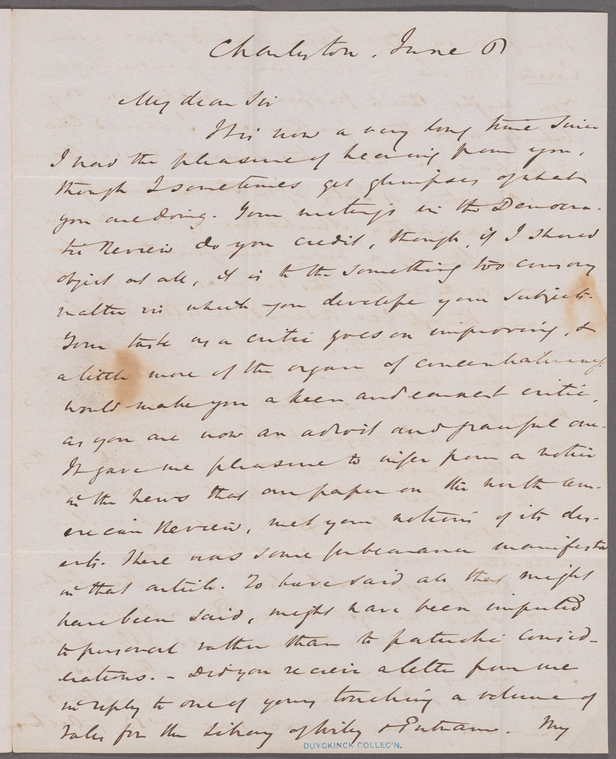 Charleston, June 6
My dear Sir
It is now a very long time since
I had the pleasure of hearing from you,
though I sometimes get glimpses of what
you are doing. Your writings in the Democra-
tic Review do you credit, though, if I should
object at all, it is to the something too cursory
matter in which you develope your subjects.
Your task as a critic goes on improving, &
a little more of the organ of concentrativeness
would make you a keen and earnest critic,
as you are now an adroit and graceful one.
It gave me pleasure to infer from a notice
in the News that our paper on the North Am-
erican Review, met your notions of its des-
erts. There was some forbearance manifested
in that article. To have said all that might
have been said, might have been imputed
to personal rather than to patriotic consid-
erations. - Did you receive a letter from me
in reply to one of yours touching a volume of
Tales for the Library of Wiley & Putnam. My
DUYCKINCK COLLEC'N.